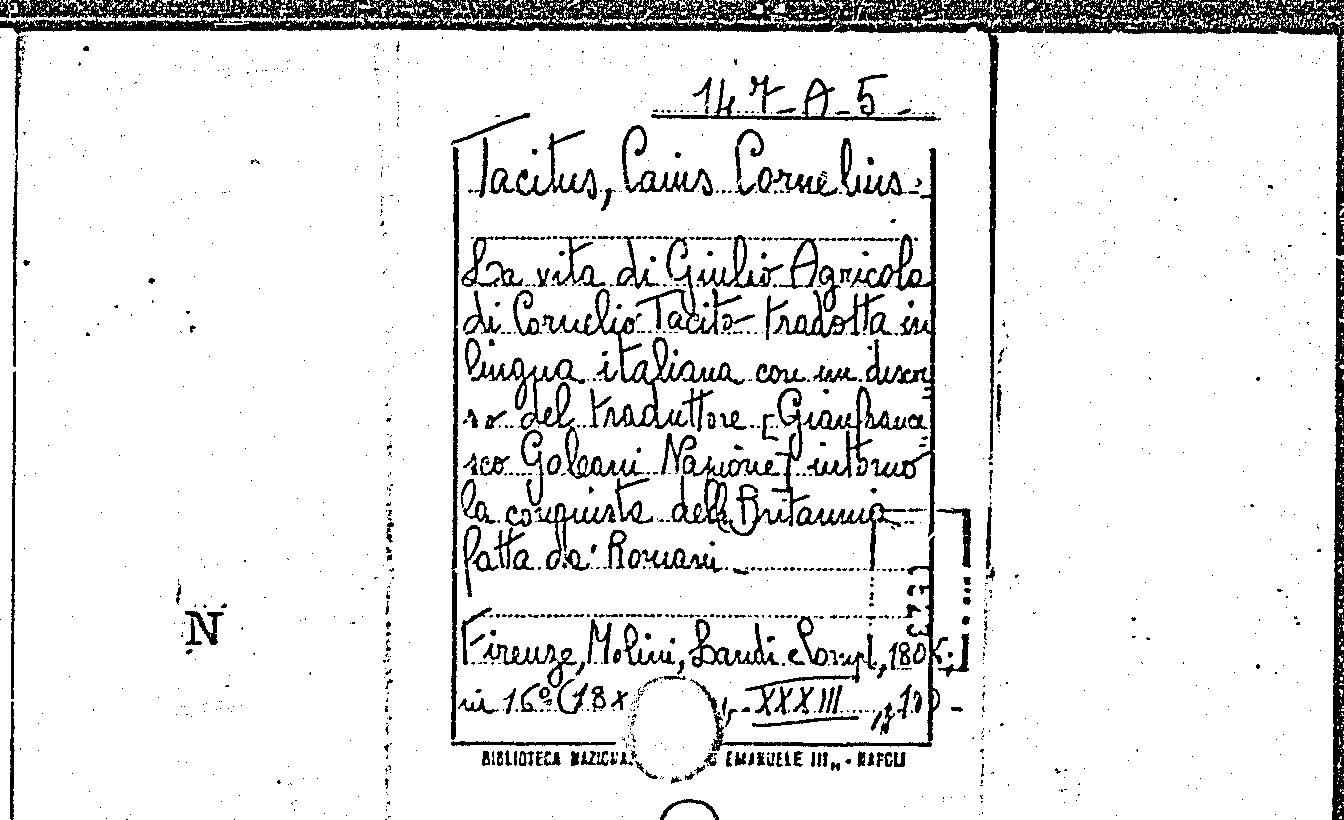 147-A-5-
Tacitus, Caius Cornelius.
La vita di Giulio Agricola
di Cornelio Tacito tradotta in
lingua italiana con un discor
so del traduttore [Gianfrance
sco Galeani Napione] intorno
la conquista della Britannia
fatta da' Romani
N
Firenze, Molini, Landi e Comp,
in 16º (18x XXXIII
BIBLIOTECA EMANUELE III" - NAPOLI